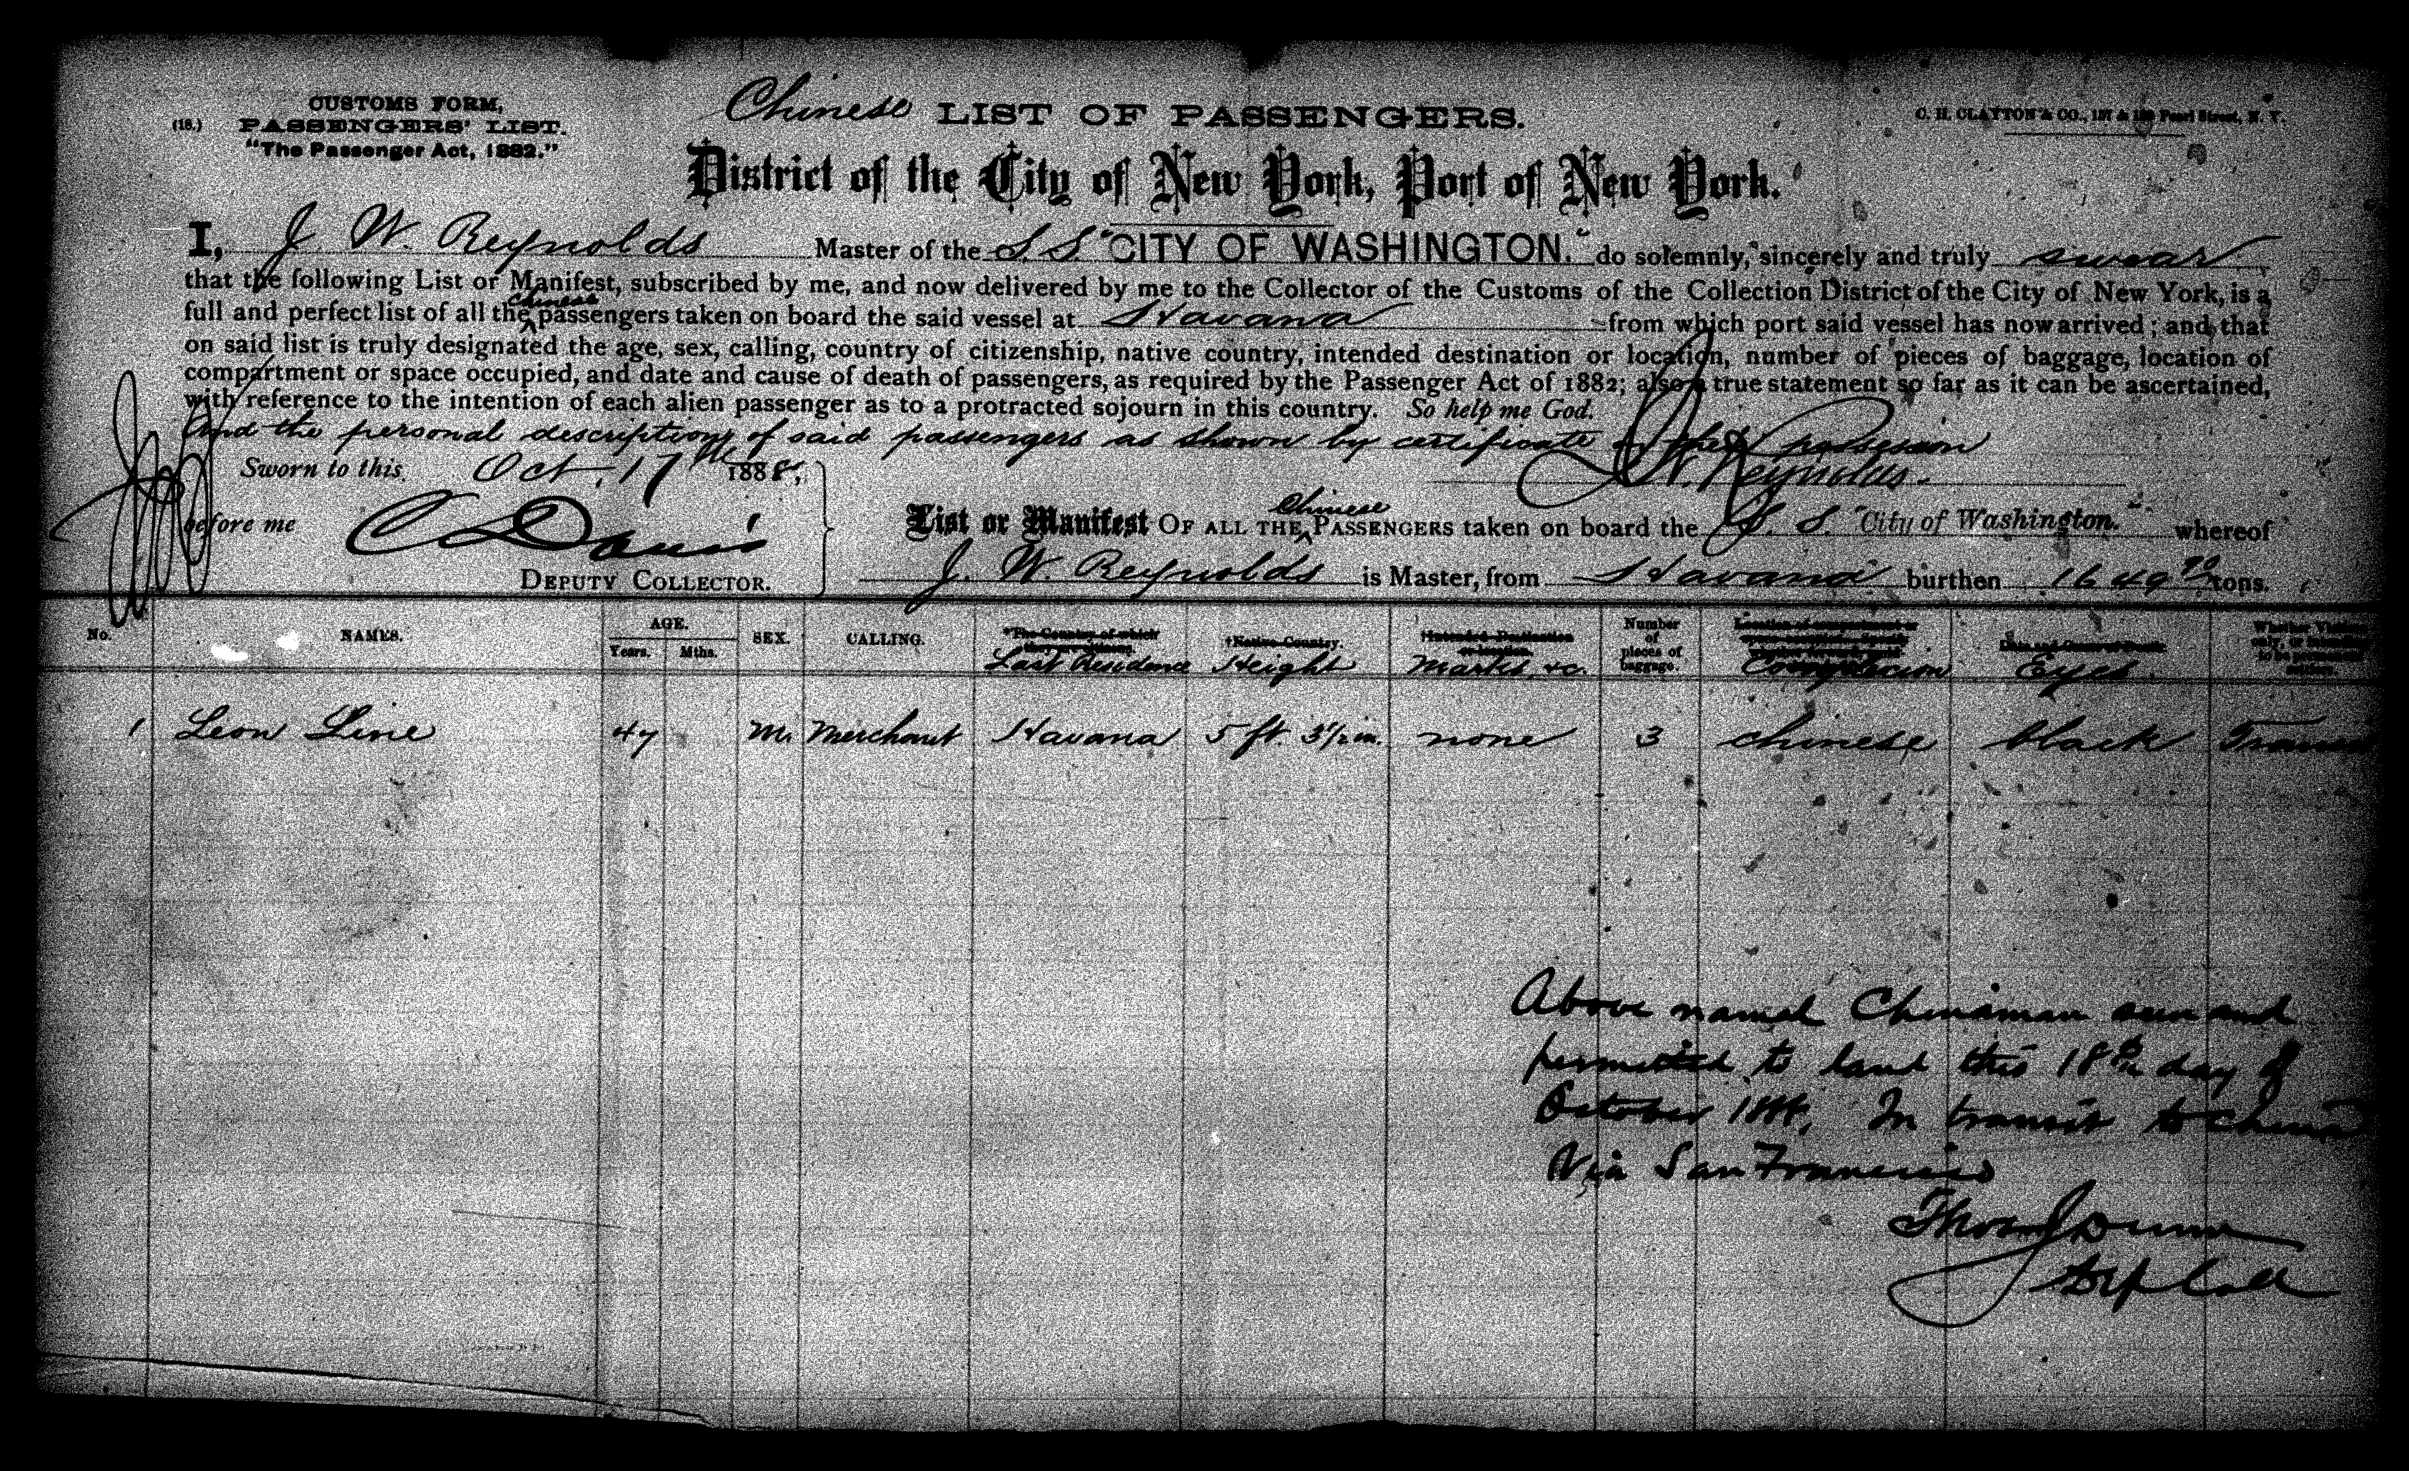 CUSTOMS FORM,
(18.) PASSENGERS' LIST.
"The Passenger Act, 1882."
Chinese LIST OF PASSENGERS.
C. H. CLAYTON & CO., Pearl Street, N. Y.
District of the City of New York, Port of New York.
I, J. W. Reynolds Master of the S. S. "CITY OF WASHINGTON." do solemnly, sincerely and truly swear
that the following List or Manifest, subscribed by me, and now delivered by me to the Collector of the Customs of the Collection District of the City of New York, is a
full and perfect list of all the chinese passengers taken on board the said vessel at Havana from which port said vessel has now arrived; and that
on said list is truly designated the age, sex, calling, country of citizenship, native country, intended destination or location, number of pieces of baggage, location of
compartment or space occupied, and date and cause of death of passengers, as required by the Passenger Act of 1882; also a true statement so far as it can be ascertained,
with reference to the intention of each alien passenger as to a protracted sojourn in this country. So help me God.
and the personal description of said passengers as shown by certificate in their possession
Sworn to this Oct. 17th 1888,
J. W. Reynolds.
before me C Davis
DEPUTY COLLECTOR.
List or Manifest OF ALL THE Chinese PASSENGERS taken on board the S. S. "City of Washington." whereof
J. W. Reynolds is Master, from Havana burthen 1649 70 tons.
No. NAMES. AGE. Years. Mths. SEX. CALLING. *The Country of which they are citizens. Last Residence †Native Country. Height †Intended Destination or location. Marks, &c. Number of pieces of baggage. Complexion Eyes
1 Leon Line 47 M. Merchant Havana 5 ft. 3½ in. none 3 chinese black
Above named Chinaman seen and
permitted to land this 18th day of
October 1888. In transit to China
Via San Francisco
Thos J Dunn
Dep Coll